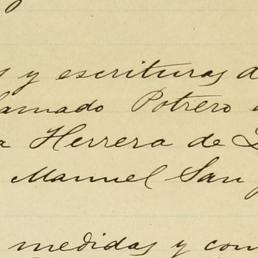 y escrituras
Potrero
Herrera de
Manuel San
medidas y